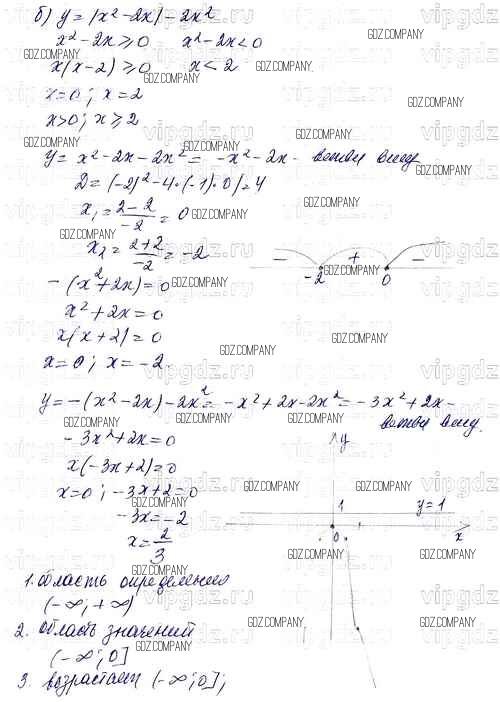 б) y = |x² - 2x| - 2x²
x² - 2x ≥ 0     x² - 2x < 0
x(x - 2) ≥ 0     x < 2
x = 0; x = 2
x > 0; x ≥ 2
y = x² - 2x - 2x² = -x² - 2x - ветви вниз
D = (-2)² - 4·(-1)·0) = 4
x₁ = (2 - 2)/(-2) = 0
x₂ = (2 + 2)/(-2) = -2
- + -
-2 0
-(x² + 2x) = 0
x² + 2x = 0
x(x + 2) = 0
x = 0; x = -2.
y = -(x² - 2x) - 2x² = -x² + 2x - 2x² = -3x² + 2x -
ветви вниз.
-3x² + 2x = 0
x(-3x + 2) = 0
x = 0; -3x + 2 = 0
-3x = -2
x = 2/3
y
1 y = 1
0 x
1. область определения
(-∞; +∞)
2. область значений
(-∞; 0]
3. возрастает (-∞; 0];
GDZ.COMPANY
vipgdz.ru